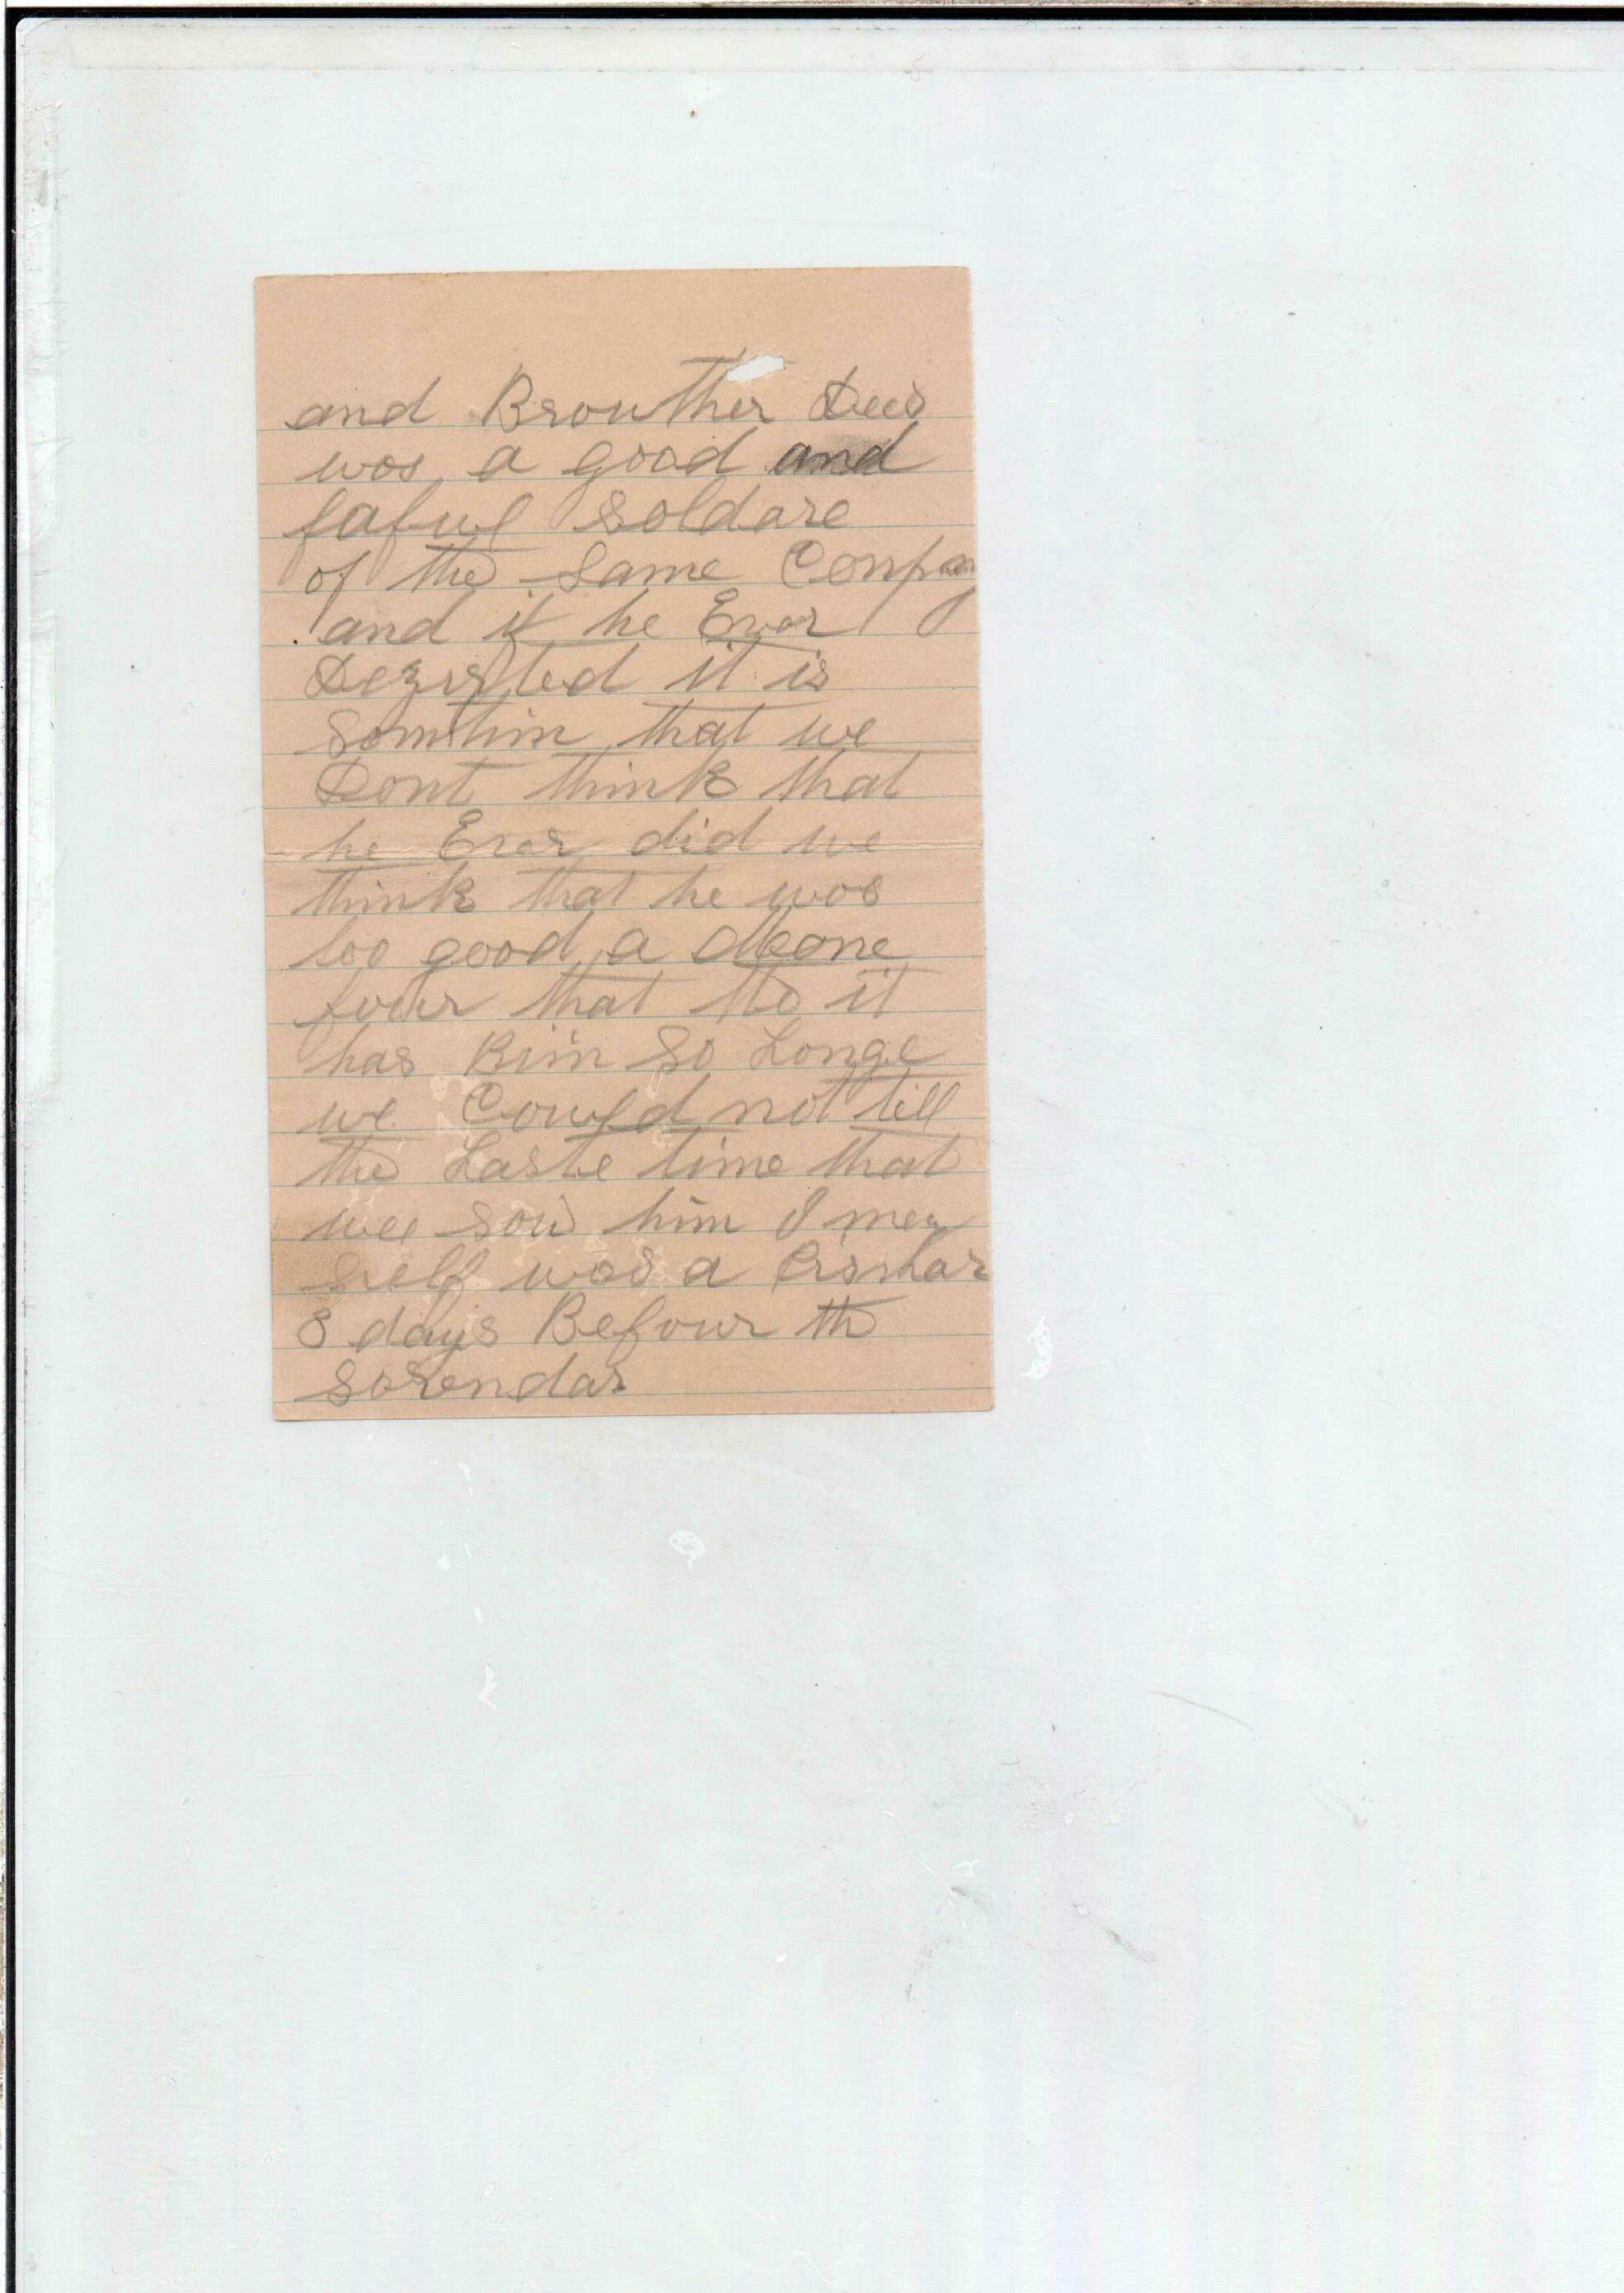 and Brouther Dees
was a good and
faful soldare
of the Same Conpany
and if he Ever
Dezirted it is
Somthin that we
Dont think that
he Ever did we
think that he was
too good a
four that tho it
has Bin so Longe
we Could not till
the Laste time that
wee sow him I mey
self was a Prisnar
8 days Befour the
Sorendar